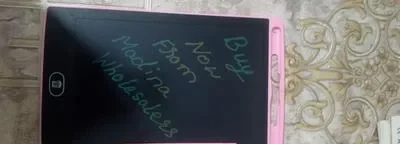 Buy
Now
From
Madina
Wholesalers